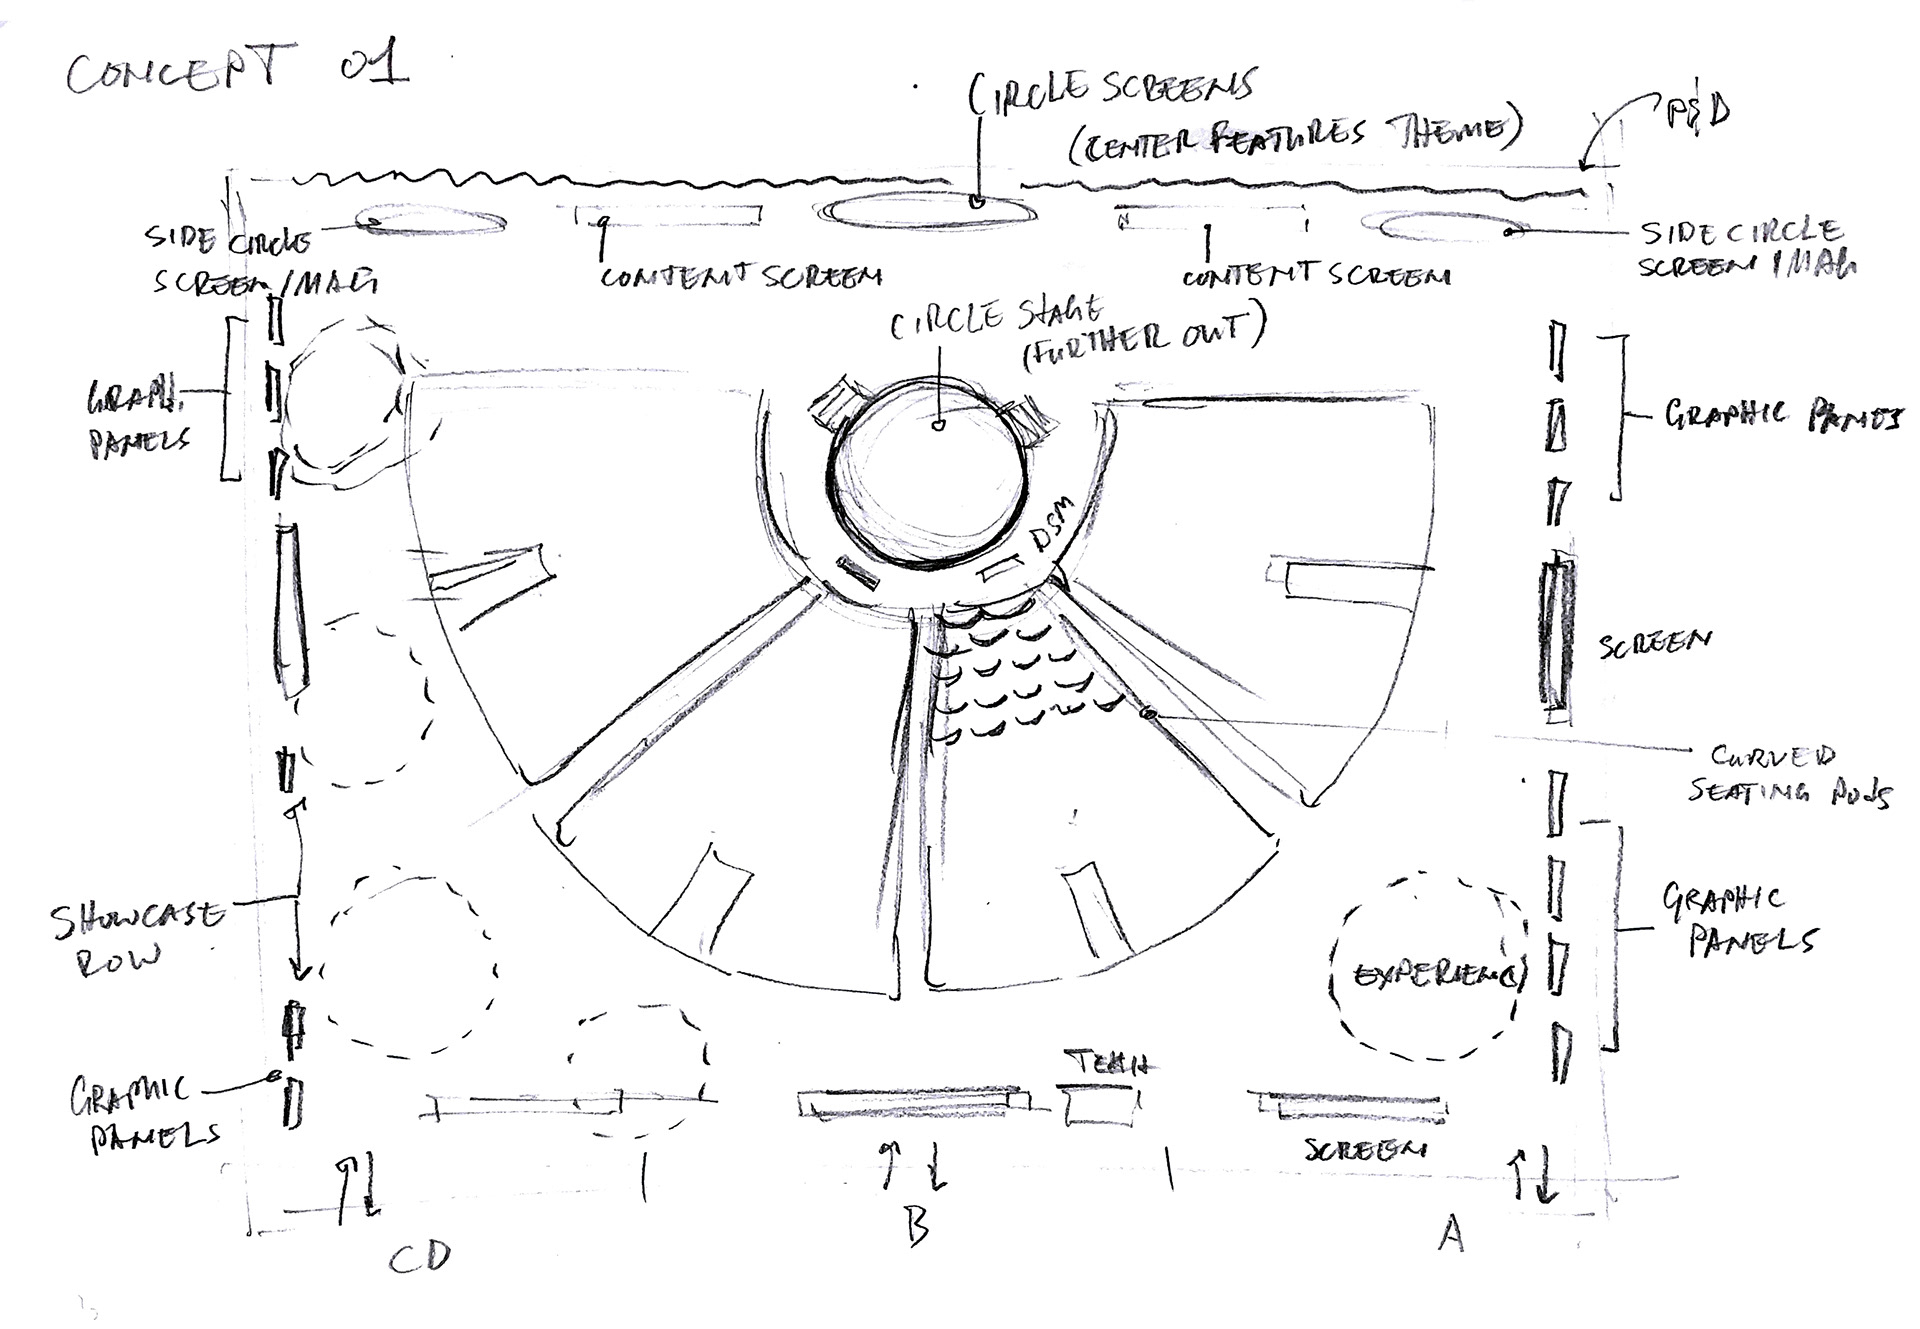 CONCEPT 01
CIRCLE SCREENS
(CENTER FEATURES THEME)
P&D
SIDE CIRCLE
SCREEN/IMAG
CONTENT SCREEN
CONTENT SCREEN
SIDE CIRCLE
SCREEN/IMAG
CIRCLE STAGE
(FURTHER OUT)
GRAPH.
PANELS
GRAPHIC PANELS
DSM
SCREEN
CURVED
SEATING PODS
SHOWCASE
ROW
GRAPHIC
PANELS
EXPERIENCE
TECH
GRAPHIC
PANELS
SCREEN
CD
B
A